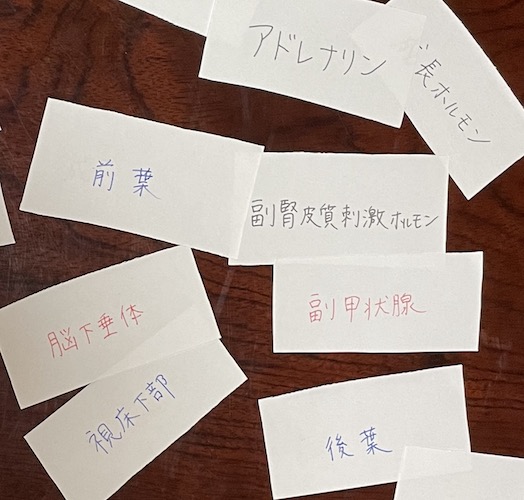 アドレナリン
長ホルモン
前葉
副腎皮質刺激ホルモン
脳下垂体
副甲状腺
視床下部
後葉